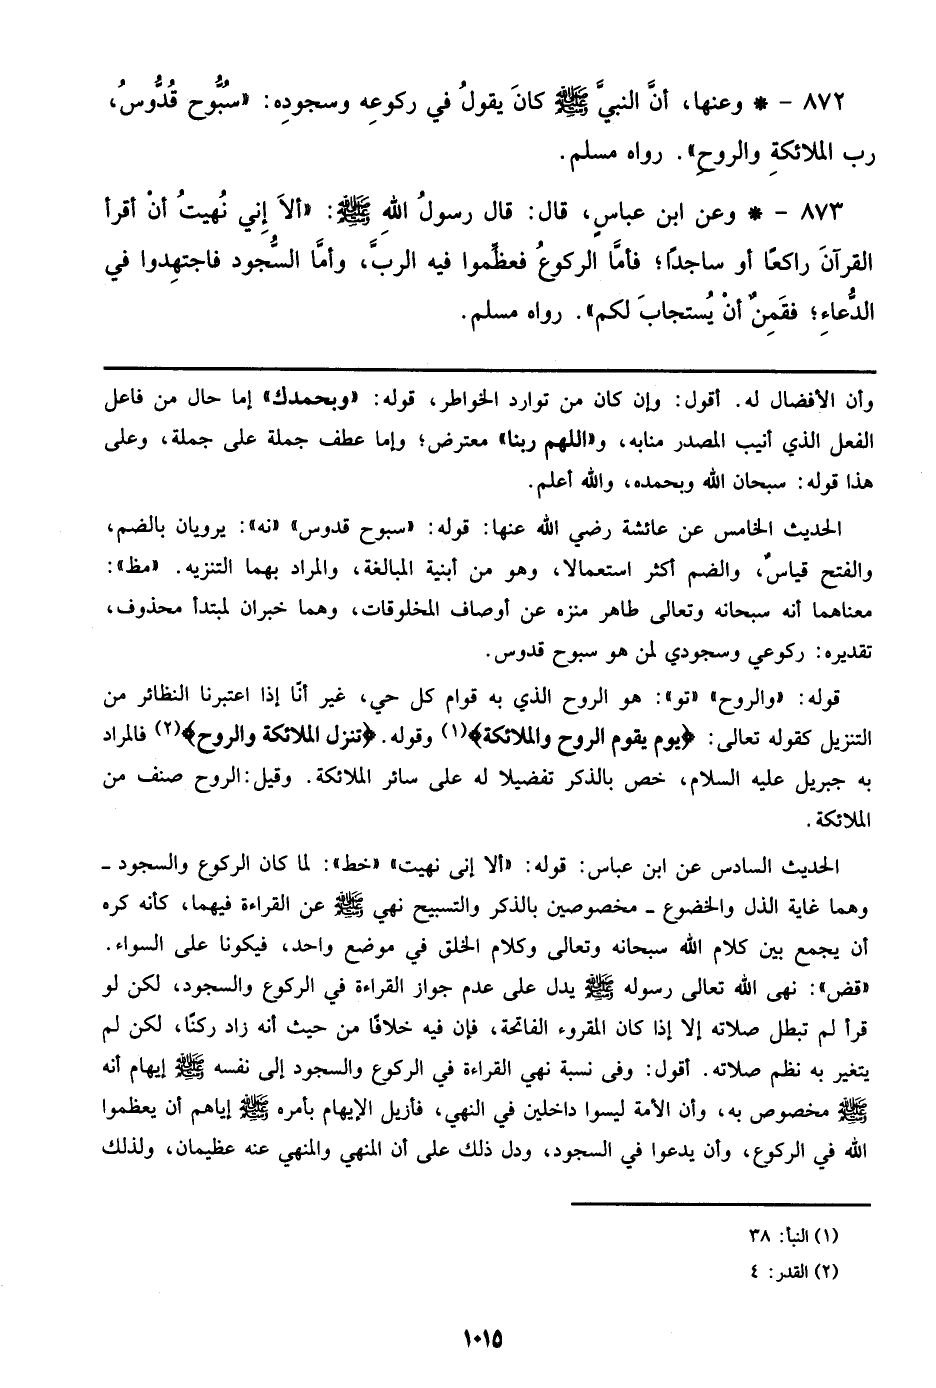 ٨٧٢ – * وعنها، أنَّ النبيَّ ﷺ كانَ يقولُ في ركوعِه وسجودِه: «سُبُّوح قُدُّوسُ،
رب الملائكةِ والروحِ». رواه مسلم.
٨٧٣ – * وعن ابن عباسٍ، قال: قال رسولُ اللهِ ﷺ: «ألاَ إِني نُهيتُ أنْ أقرأ
القرآنَ راكعًا أو ساجدًا؛ فأمَّا الركوعُ فعظِّموا فيه الربَّ، وأمَّا السُّجود فاجتهِدوا في
الدُّعاءِ؛ فقَمِنٌ أنْ يُستجابَ لكم». رواه مسلم.
وأن الأفضال له. أقول: وإن كان من توارد الخواطر، قوله: «وبحمدك» إما حال من فاعل
الفعل الذي أنيب المصدر منابه، و«اللهم ربنا» معترض؛ وإما عطف جملة على جملة، وعلى
هذا قوله: سبحان الله وبحمده، والله أعلم.
الحديث الخامس عن عائشة رضي الله عنها: قوله: «سبوح قدوس» «نه»: يرويان بالضم،
والفتح قياسٌ، والضم أكثر استعمالا، وهو من أبنية المبالغة، والمراد بهما التنزيه. «مظ»:
معناهما أنه سبحانه وتعالى طاهر منزه عن أوصاف المخلوقات، وهما خبران لمبتدأ محذوف،
تقديره: ركوعي وسجودي لمن هو سبوح قدوس.
قوله: «والروح» «تو»: هو الروح الذي به قوام كل حي، غير أنّا إذا اعتبرنا النظائر من
التنزيل كقوله تعالى: ﴿يوم يقوم الروح والملائكة﴾(١) وقوله. ﴿تنزل الملائكة والروح﴾(٢) فالمراد
به جبريل عليه السلام، خص بالذكر تفضيلا له على سائر الملائكة. وقيل: الروح صنف من
الملائكة.
الحديث السادس عن ابن عباس: قوله: «ألا إنى نهيت» «خط»: لما كان الركوع والسجود ـ
وهما غاية الذل والخضوع ـ مخصوصين بالذكر والتسبيح نهي ﷺ عن القراءة فيهما، كأنه كره
أن يجمع بين كلام الله سبحانه وتعالى وكلام الخلق في موضع واحد، فيكونا على السواء.
«قض»: نهى الله تعالى رسوله ﷺ يدل على عدم جواز القراءة في الركوع والسجود، لكن لو
قرأ لم تبطل صلاته إلا إذا كان المقروء الفاتحة، فإن فيه خلافًا من حيث أنه زاد ركنًا، لكن لم
يتغير به نظم صلاته. أقول: وفى نسبة نهي القراءة في الركوع والسجود إلى نفسه ﷺ إيهام أنه
ﷺ مخصوص به، وأن الأمة ليسوا داخلين في النهي، فأزيل الإيهام بأمره ﷺ إياهم أن يعظموا
الله في الركوع، وأن يدعوا في السجود، ودل ذلك على أن المنهي والمنهي عنه عظيمان، ولذلك
(١) النبأ: ٣٨
(٢) القدر: ٤
١٠١٥